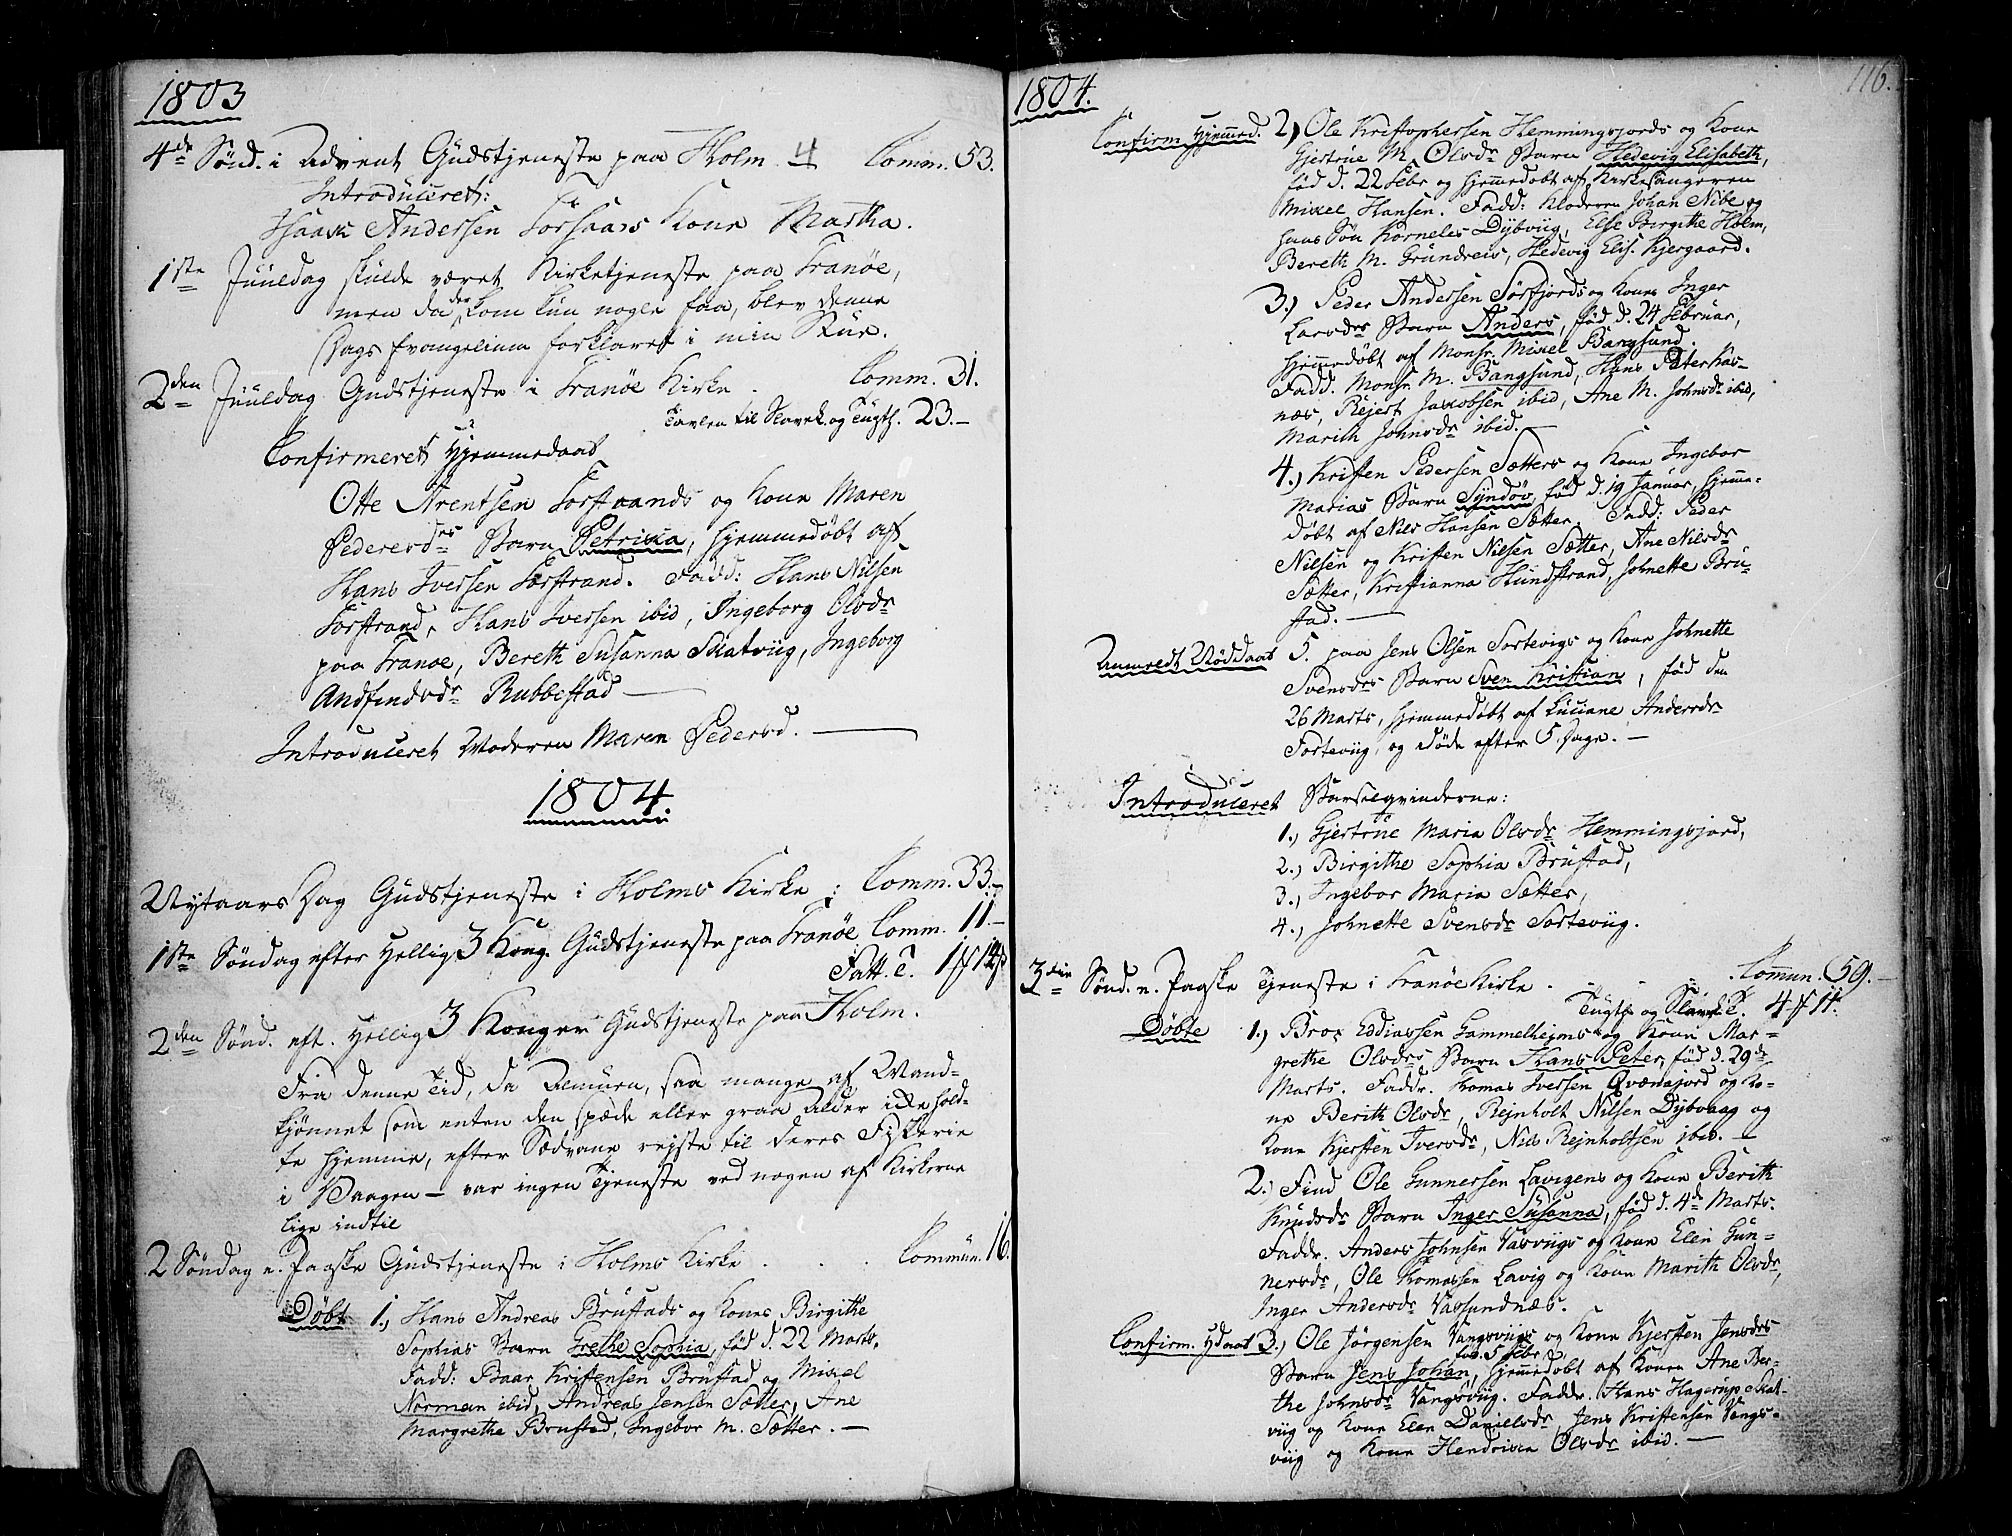 1803
4de Sønd. i Advent Gudstjeneste paa Holm. 4 Comm. 53.
Introduceret:
Isaach Andersen Kone Martha.
1ste Juuldag skulde været Kirketjeneste paa Tranøe,
men da der kom kun nogle faa, blev denne
Dags Evangelium forklaret i min Stue.
2den Juuldag Gudstjeneste i Tranøe Kirke. Comm. 31.
Tavlen til Slavek. og Tugth. 23.—
Confirmeret Hjemmedaab
Otte Arentsen Forstrands og Kone Maren
Pedersdrs Barn Petrikka, hjemmedøbt af
Hans Iversen Forstrand. Fadd: Hans Nilsen
Forstrand, Hans Iversen ibid, Ingeborg Olsdr
paa Tranøe, Bereth Susanna Skatviig, Ingeborg
Andfindsdr Rubbestad —
Introduceret Moderen Maren Pedersd. —
1804.
Nytaars Dag Gudstjeneste i Holms Kirke: Comm. 33.—
1ste Søndag efter Hellig 3 Kong. Gudstjeneste paa Tranøe Comm. 11.—
Fatt. T. 1 14
2den Sønd. eft. Hellig 3 Konger Gudstjeneste paa Holm.
Fra denne Tid, da Almuen, saa mange af Mand-
kjønnet som enten den spæde eller graa Alder ikke hold-
te hjemme, efter Sædvane rejste til deres Fiskerie
i Vaagen — var ingen Tjeneste ved nogen af Kirkerne
lige indtil
2 Søndag e. Paaske Gudstjeneste i Holms Kirke . . . Commun. 16.
Døbt 1., Hans Andreas Brustads og Kones Birgithe
Sophias Barn Grethe Sophia, fød d. 22 Marts.
Fadd: Baar Kristensen Brustad og Mikel
Norman ibid, Andreas Jensen Sætter, Ane
Margrethe Brustad, Ingebor M. Sætter. —
1804. 116.
Confirm. Hjemmed. 2) Ole Kristophersen Hemmingsjords og Kone
Gjertrue M. Olsdr Barn Hedevig Elisabeth,
fød d. 22 Febr og hjemmedøbt af Kirkesangeren
Mikel Hansen. Fadd: Klokkeren Johan Nibe og
hans Søn Korneles Dybviig, Else Birgithe Holm,
Bereth M. Grundreis, Hedevig Elis. Kjergaard.
3) Peder Andersen Sørfjords og Kones Inger
Larsdrs Barn Anders, fød d. 24 Februar,
hjemmedøbt af Monsr. Mikel Bangsund.
Fadd. Monsr. M. Bangsund, Hans Peter Kas-
næs, Rejert Jakobsen ibid, Ane M. Johnsdr ibid,
Marith Johnsdr ibid.—
4.) Kristen Pedersen Sætters og Kone Ingebor
Marias Barn Syndøv, fød d. 19 Januar, hjemme-
døbt af Nils Hansen Sætter. Fadd: Peder
Nilsen og Kristen Nilsen Sætter, Ane Nilsdr
Sætter, Kristianna Hundstrand, Johnette Bru-
stad. —
Anmeldt Nøddaab 5. paa Jens Olsen Sorteviigs og Kone Johnette
Svensdrs Barn Sven Kristian, fød den
26 Marts, hjemmedøbt af Luciane Andersdr
Sorteviig, og døde efter 5 Dage. —
Introduceret Barselqvinderne:
1., Gjertrue Maria Olsdr Hemmingsjord,
2.) Birgithe Sophia Brustad,
3., Ingebor Maria Sætter,
4., Johnette Svensdr Sorteviig.
3die Sønd. e. Paaske Tjeneste i Tranøe Kirke . . . Commun. 59.—
Tugth og Slave T. 4 11.
Døbte 1.) Brox Eddiassen Gammelheims og Kone Mar-
grethe Olsdrs Barn Hans Peter, fød d. 29de
Marts. Faddr. Thomas Iversen Qvænnajord og Ko-
ne Berith Olsdr, Rejnholt Nilsen Dybvaag og
Kone Kjersten Iversdr, Nils Rejnholtsen ibid. —
2.) Find Ole Gunnersen Lavigens og Kone Berith
Knudsdr Barn Inger Susanna, fød d. 4de Marts.
Faddr. Anders Johnsen Vasviigs og Kone Elen Gun-
nersdr, Ole Thomassen Lavig og Kone Marith Olsdr,
Inger Andersdr Vassundnæs.
Confirm. Hdaab 3.) Ole Jørgensen Vangsviigs og Kone Kjersten Jensdrs
fød. 5 Febr
Barn Jens Johan, hjemmedøbt af Konen Ane Ber-
the Johnsdr Vangsviig. Faddr. Hans Hagerup Skat-
viig og Kone Elen Danielsdr, Jens Kristensen Vangs-
viig og Kone Hendrikka Olsdr ibid. —